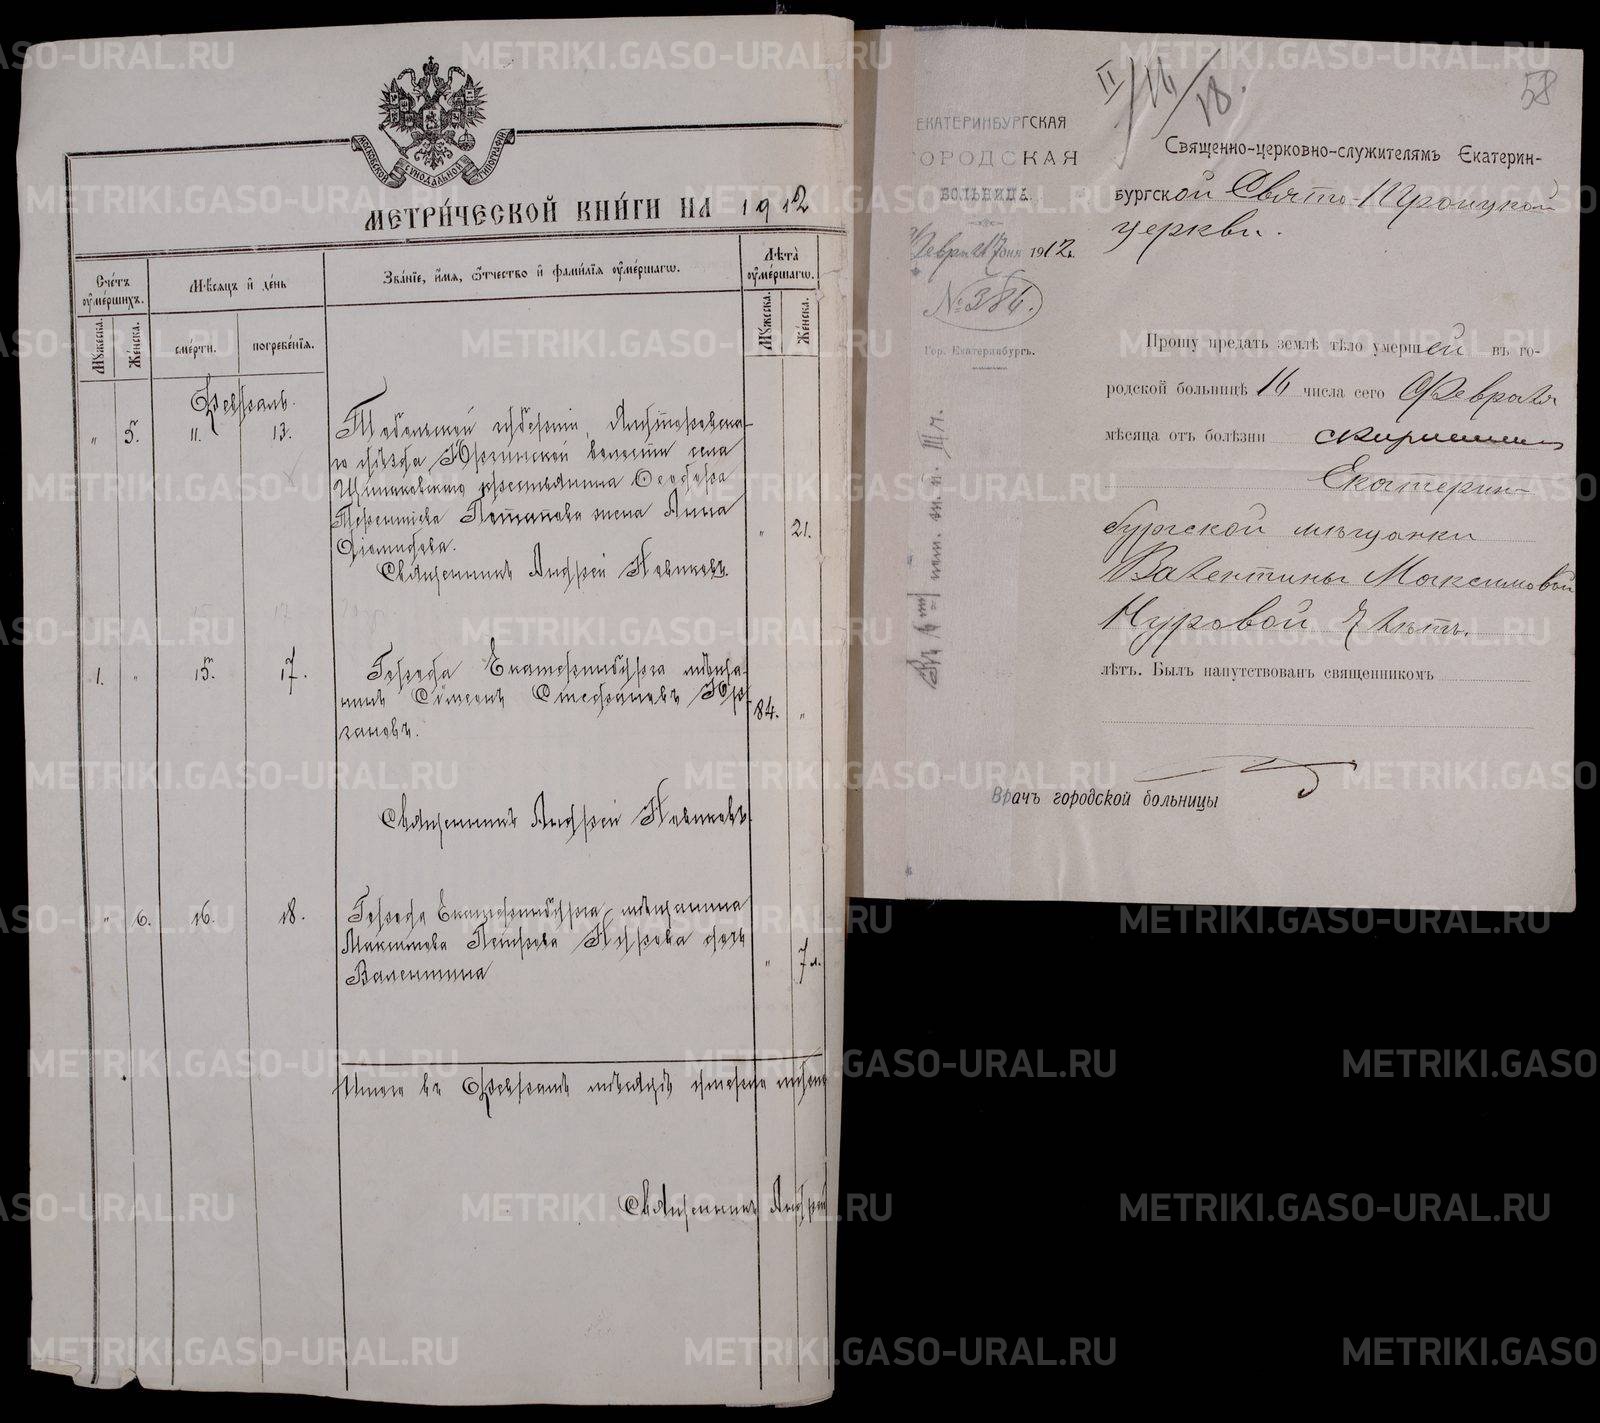 МОСКОВСКОЙ СИНОДАЛЬНОЙ ТИПОГРАФІИ
МЕТРИ́ЧЕСКОЙ КНИ́ГИ НА 1912
Сче́тъ ᲂу҆ме́ршихъ.
Мѣ́сяцъ и҆ де́нь
Зва́нїе, и҆́мя, ѻ҆́тчество и҆ фами́лїя ᲂу҆ме́ршагѡ.
Лѣ́та ᲂу҆ме́ршагѡ.
Мꙋ́жеска.
Же́нска.
сме́рти.
погребе́нїя.
Мꙋ́жеска.
Же́нска.
Февраль.
" 5. 11. 13.
Тобольской губерніи, Ялуторовска-
го уѣзда Юргинской волости села
Шипаковскаго крестьянина Ѳеодора
Терентіева Потапова жена Анна
" 21.
Священникъ Андрей Новиковъ.
1. " 15. 17.
Города Екатеринбурга мѣща-
нинъ Симеонъ Стефановъ
84. "
Священникъ Андрей Новиковъ
" 6. 16. 18.
Города Екатеринбурга мѣщанина
Максимова Петрова Нурова дочь
Валентина
" 7 л.
Итого въ Февралѣ мѣсяцѣ умерло
Священникъ Андрей
II/16/18.
58
ЕКАТЕРИНБУРГСКАЯ
ГОРОДСКАЯ
БОЛЬНИЦА.
Февраля 17 дня 1912 г.
№ 386.
Гор. Екатеринбургъ.
Священно-церковно-служителямъ Екатерин-
бургской Свято-Троицкой
церкви.
Прошу предать землѣ тѣло умершей въ го-
родской больницѣ 16 числа сего Февраля
мѣсяца отъ болѣзни скарлатины
Екатерин-
бургской мѣщанки
Валентины Максимовой
Нуровой 7 лѣтъ.
лѣтъ. Былъ напутствованъ священникомъ
Врачъ городской больницы
METRIKI.GASO-URAL.RU